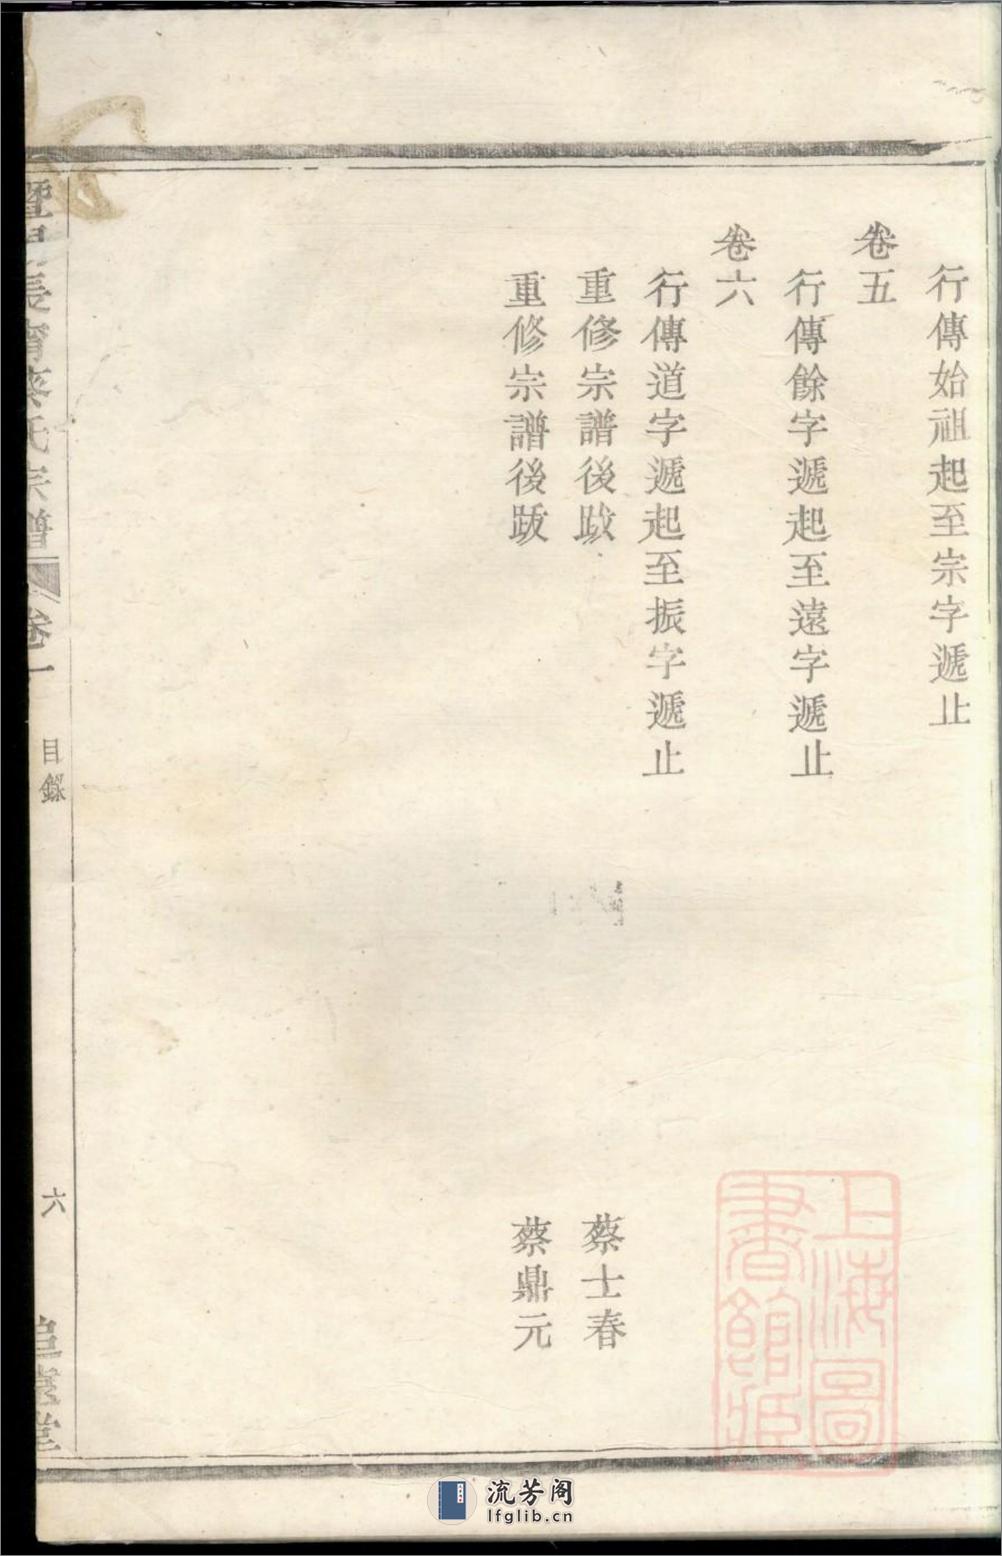 行傳始祖起至宗字遞止
卷五
行傳餘字遞起至遠字遞止
卷六
行傳道字遞起至振字遞止
重修宗譜後跋 蔡士春
重修宗譜後跋 蔡鼎元
長甯蔡氏宗譜 卷一 目錄 六 堂
上海圖書館藏
流芳阁
lfglib.cn